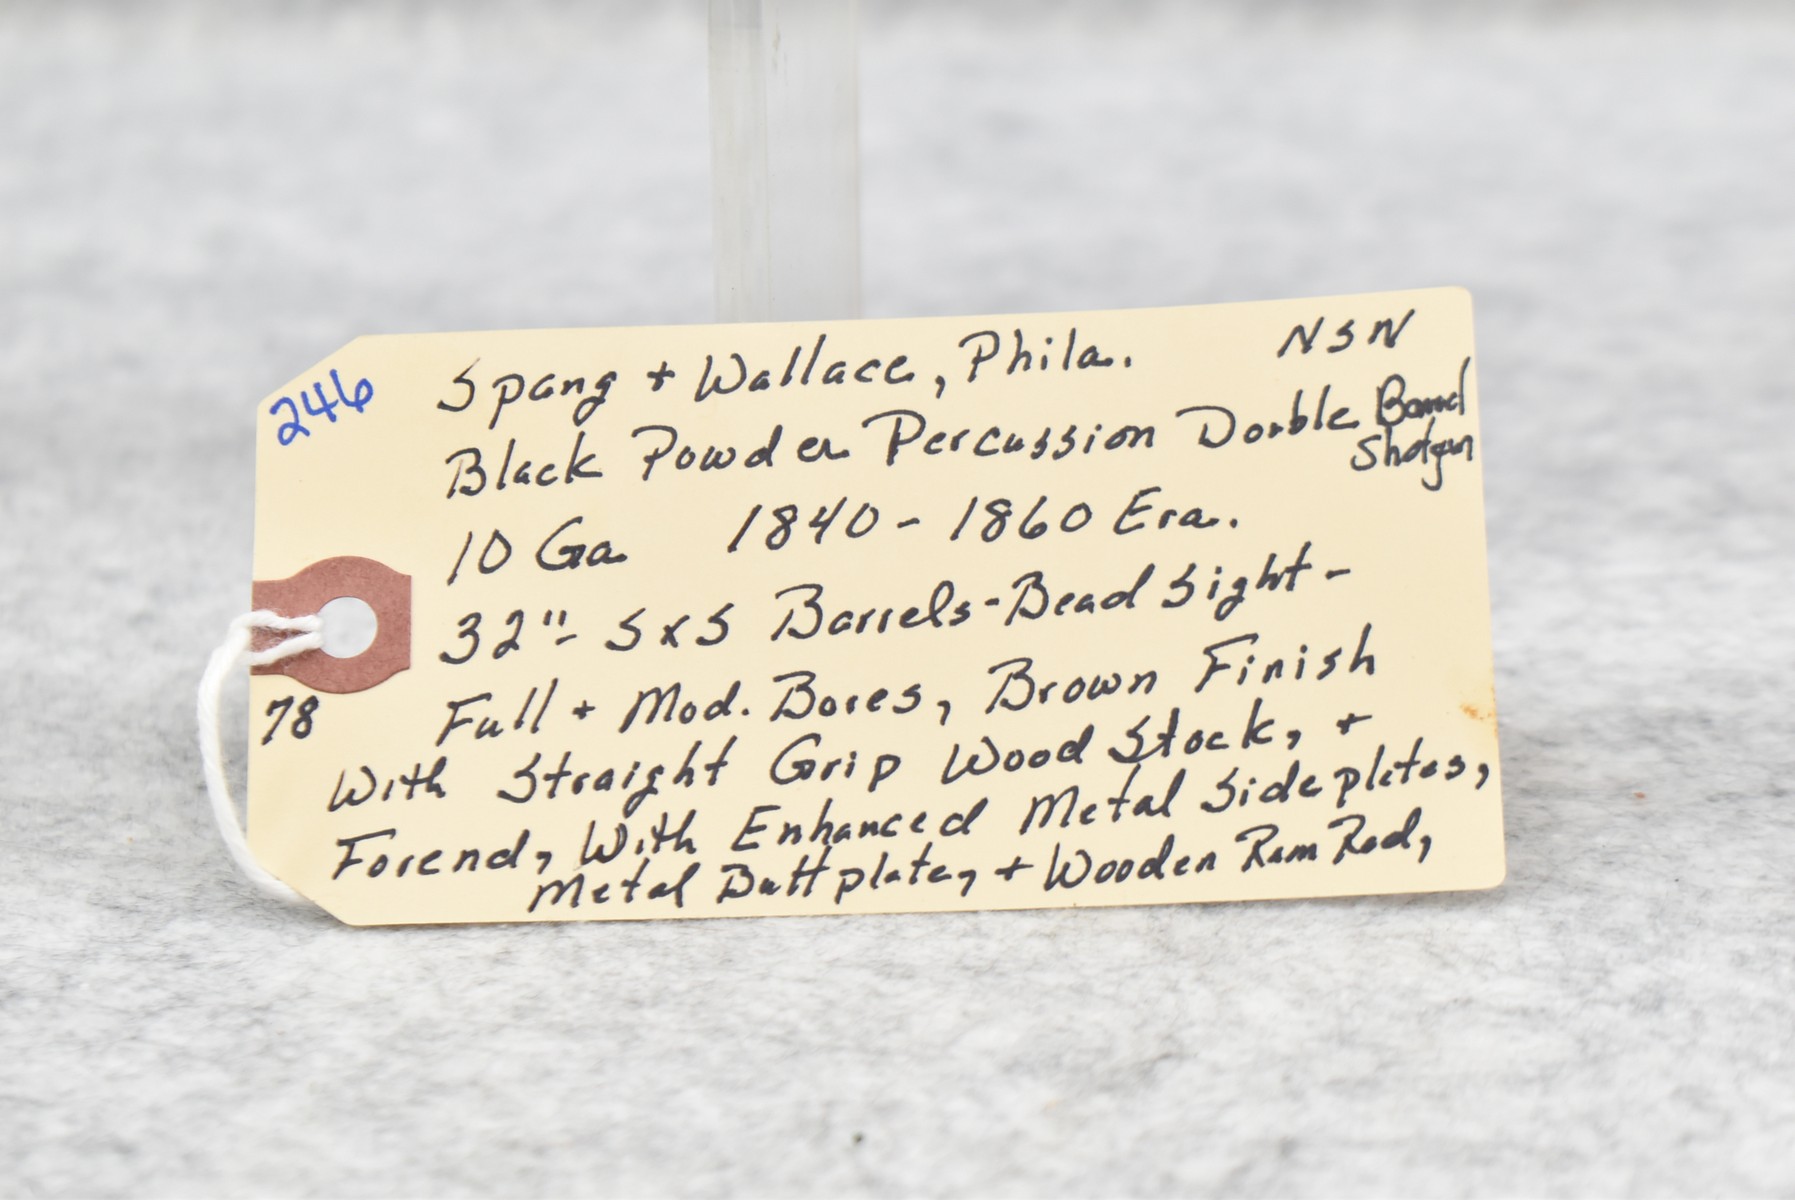 246
Spang + Wallace, Phila. NSN
Black Powder Percussion Double Barrel
Shotgun
10 Ga 1840 - 1860 Era.
32"- SxS Barrels - Bead Sight -
78
Full + Mod. Bores, Brown Finish
With Straight Grip Wood Stock, +
Forend, With Enhanced Metal Sideplates,
Metal Buttplate, + Wooden Ram Rod,